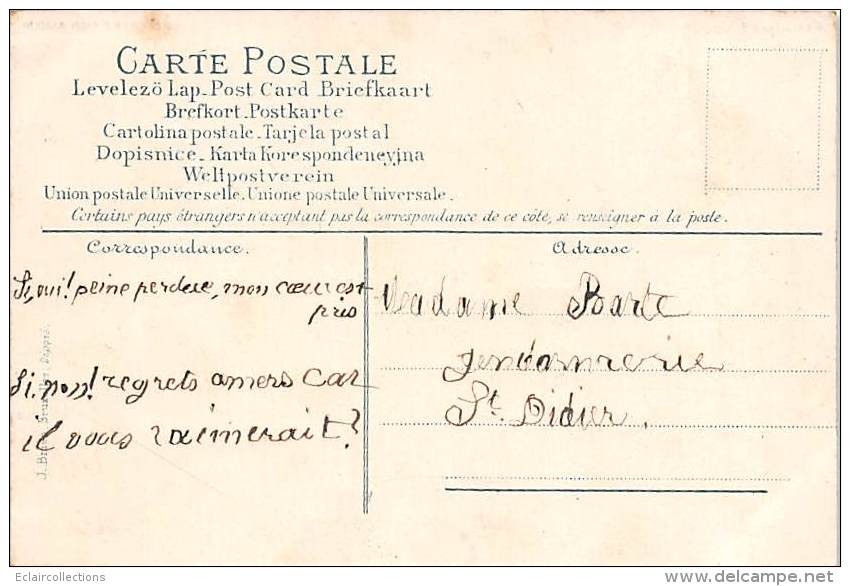 CARTE POSTALE
Levelezö Lap_Post Card_Briefkaart
Brefkort_Postkarte
Cartolina postale_Tarjela postal
Dopisnice_Karta Korespondencyjna
Weltpostverein
Union postale Universelle_Unione postale Universale.
Certains pays étrangers n'acceptant pas la correspondance de ce côté, se renseigner à la poste.
Correspondance.
Si, oui! peine perdue, mon cœur est
pris
Si, non! regrets amers car
il vous aimerait?
Adresse.
Madame
Gendarmerie
St. Didier.
Eclaircollections
delcampe.net